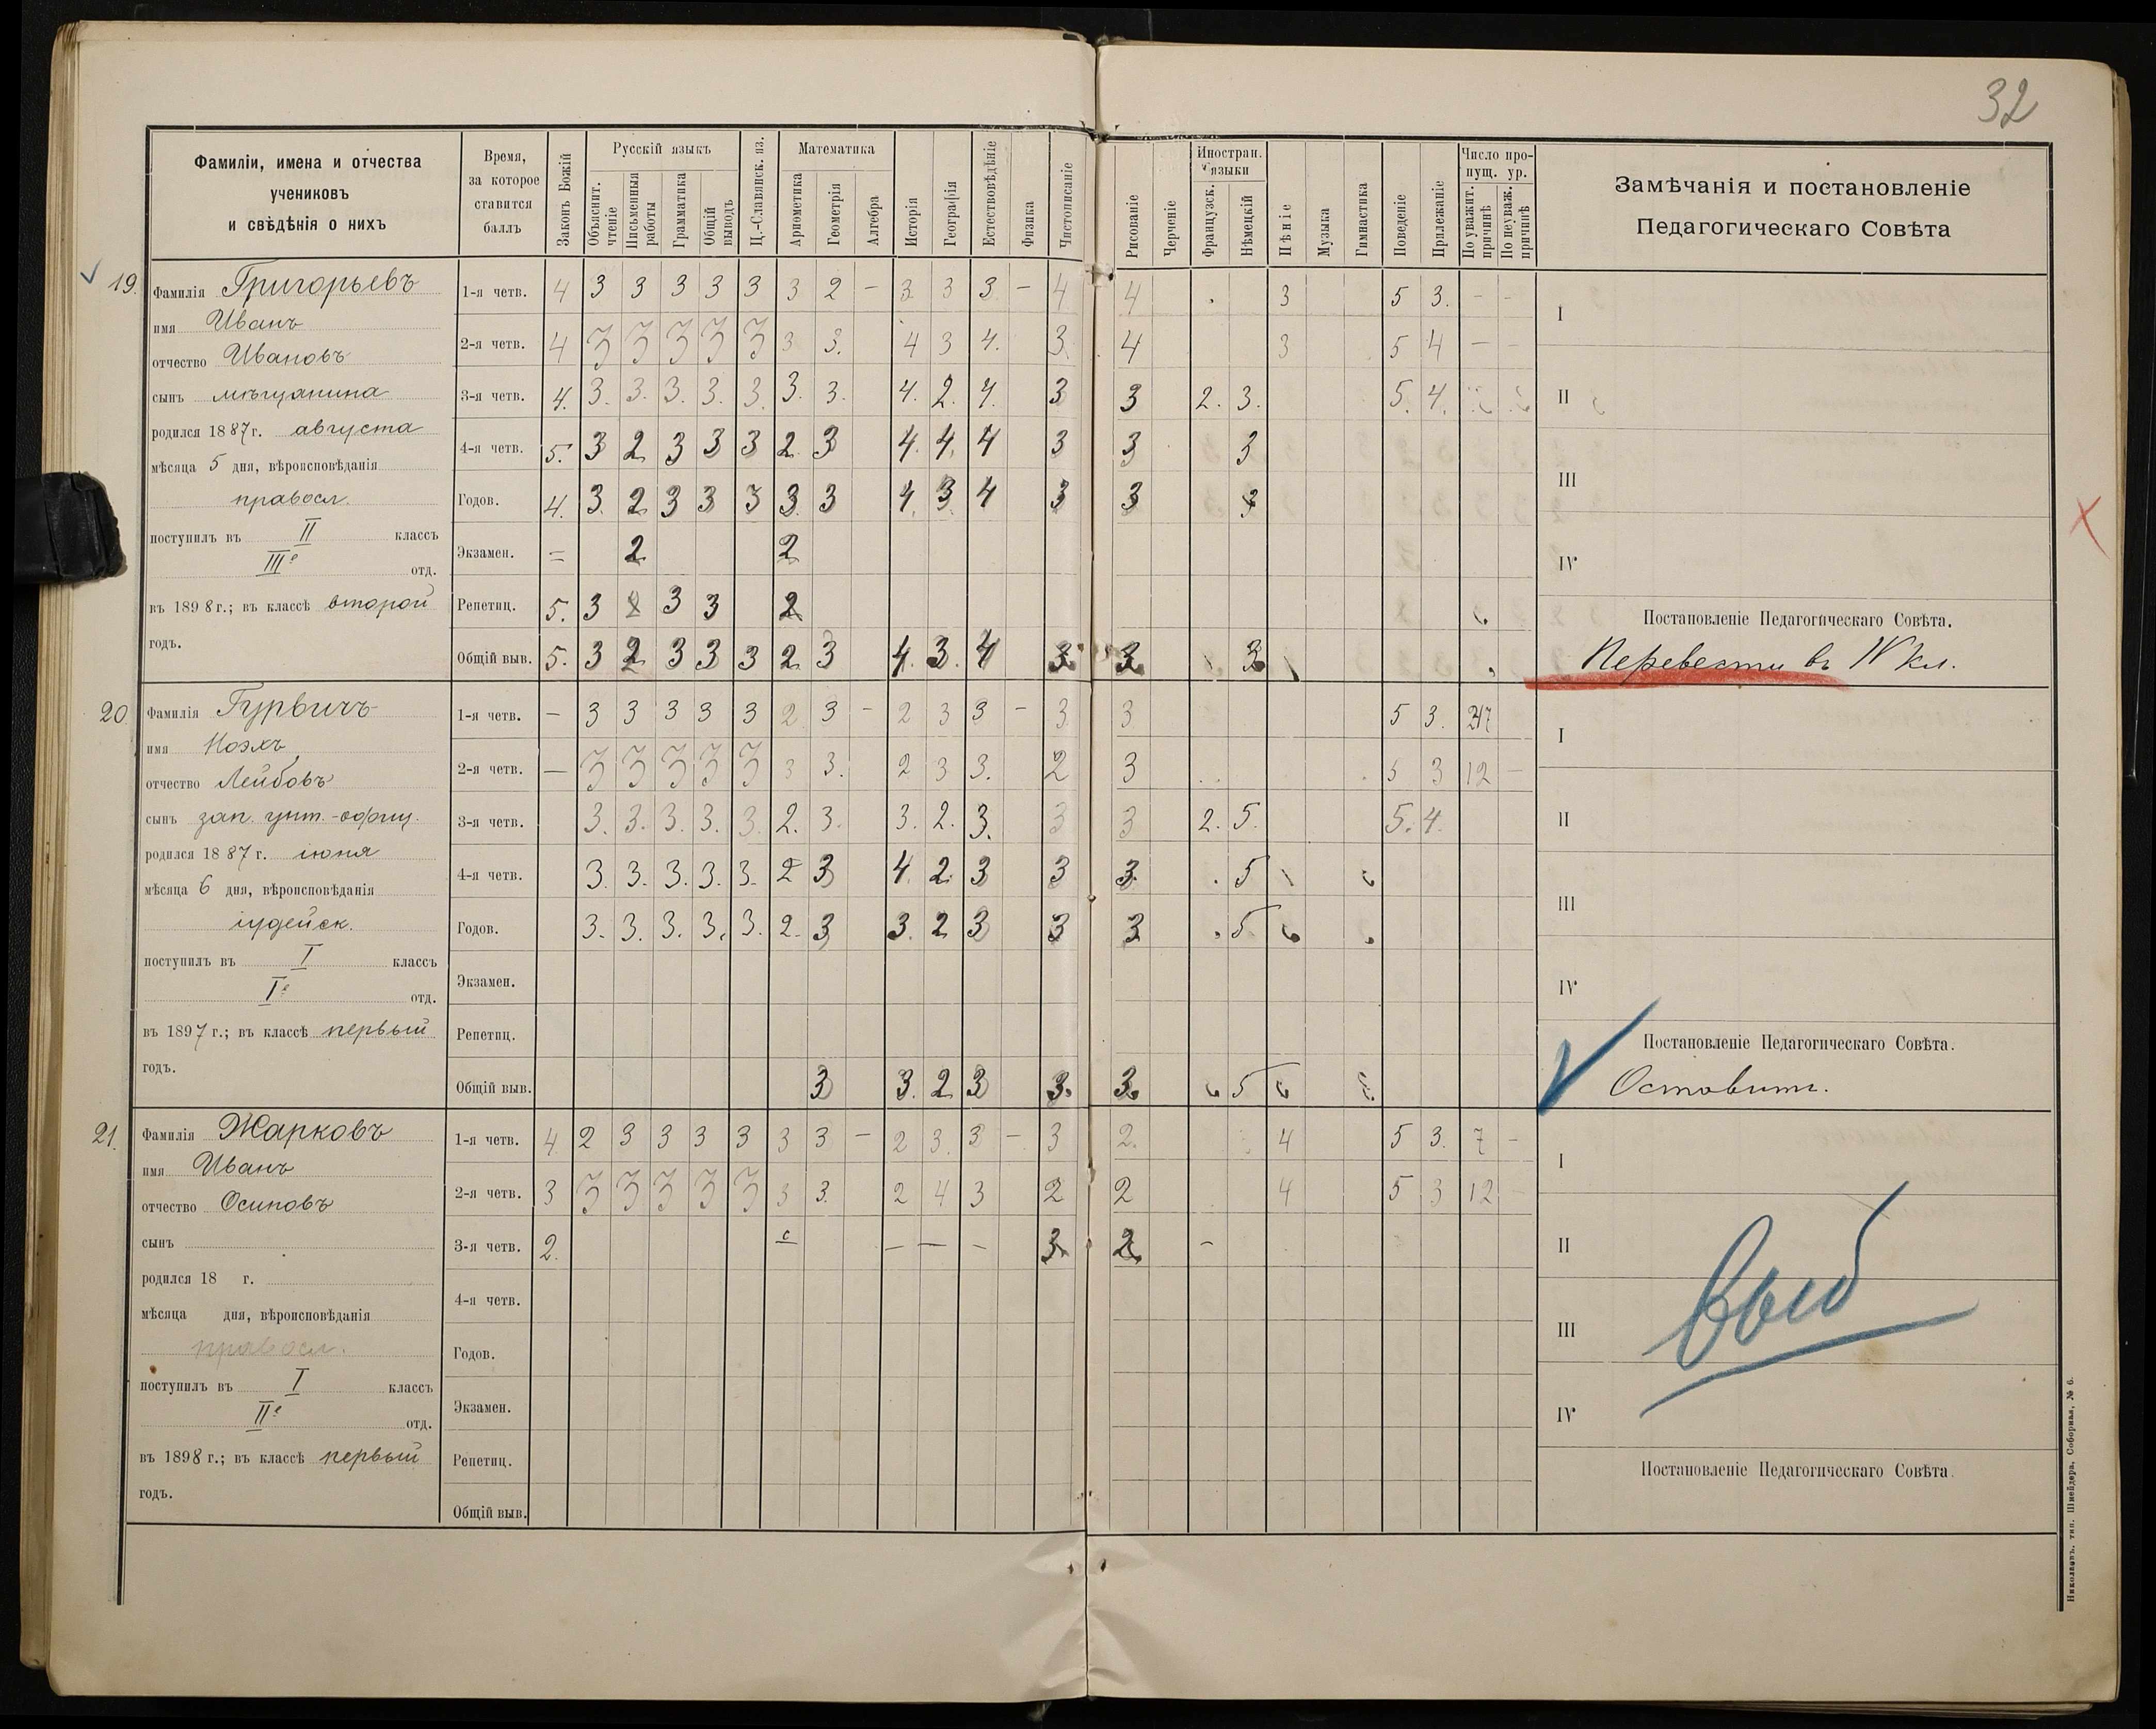 32
Фамиліи, имена и отчества
учениковъ
и свѣдѣнія о нихъ
Время,
за которое
ставится
баллъ
Законъ Божій
Русскій языкъ
Объяснит. чтеніе
Письменныя работы
Грамматика
Общій выводъ
Ц.-Славянск. яз.
Математика
Ариѳметика
Геометрія
Алгебра
Исторія
Географія
Естествовѣдѣніе
Физика
Чистописаніе
Рисованіе
Черченіе
Иностран. языки
Французск.
Нѣмецкій
Пѣніе
Музыка
Гимнастика
Поведеніе
Прилежаніе
Число пропущ. ур.
По уважит. причинѣ
По неуваж. причинѣ
Замѣчанія и постановленіе
Педагогическаго Совѣта
19.
Фамилія Григорьевъ
имя Иванъ
отчество Ивановъ
сынъ мѣщанина
родился 1887 г. августа
мѣсяца 5 дня, вѣроисповѣданія
правосл.
поступилъ въ II классъ
IIIе отд.
въ 1898 г.; въ классѣ второй
годъ.
1-я четв. 4 3 3 3 3 3 3 2 – 3 3 3 – 4 4 3 5 3. – –
2-я четв. 4 3 3 3 3 3 3 3. 4 3 4. 3 4 3 5 4 – –
3-я четв. 4. 3. 3. 3. 3. 3. 3. 3. 4. 2. 4. 3 3 2. 3. 5. 4.
4-я четв. 5. 3 2 3 3 3 2. 3 4. 4. 4 3 3 3
Годов. 4. 3. 2 3 3 3 3. 3 4. 3. 4 3 3 3
Экзамен. = 2 2
Репетиц. 5. 3 2 3 3 2
Общій выв. 5. 3 2 3 3 3 2. 3 4. 3. 4 3. 3. 3
I
II
III
IV
Постановленіе Педагогическаго Совѣта.
Перевести въ IV кл.
20.
Фамилія Гурвичъ
имя Ноэхъ
отчество Лейбовъ
сынъ зап. унт.-офиц.
родился 1887 г. іюня
мѣсяца 6 дня, вѣроисповѣданія
іудейск.
поступилъ въ I классъ
Iе отд.
въ 1897 г.; въ классѣ первый
годъ.
1-я четв. – 3 3 3 3 3 2 3 – 2 3 3 – 3 3 5 3. 247
2-я четв. – 3 3 3 3 3 3 3. 2 3 3. 2 3 5 3 12 –
3-я четв. 3. 3. 3. 3. 3. 2. 3. 3. 2. 3. 3 3 2. 5. 5. 4.
4-я четв. 3. 3. 3. 3. 3. 2 3 4. 2. 3 3 3. 5
Годов. 3. 3. 3. 3. 3. 2. 3 3. 2 3 3 3 5
Экзамен.
Репетиц.
Общій выв. 3 3. 2 3 3. 3. 5
I
II
III
IV
Постановленіе Педагогическаго Совѣта.
Оставить.
21.
Фамилія Жарковъ
имя Иванъ
отчество Осиповъ
сынъ
родился 18 г.
мѣсяца дня, вѣроисповѣданія
правосл.
поступилъ въ I классъ
IIе отд.
въ 1898 г.; въ классѣ первый
годъ.
1-я четв. 4. 2 3 3 3 3 3 3 – 2 3. 3 – 3 2. 4 5 3. 7 –
2-я четв. 3 3 3 3 3 3 3 3. 2 4 3 2 2 4 5 3 12
3-я четв. 2. – – – 3. 2 –
4-я четв.
Годов.
Экзамен.
Репетиц.
Общій выв.
I
II
III
IV
выб
Постановленіе Педагогическаго Совѣта.
Николаевъ. тип. Шнейдера, Соборная, № 6.